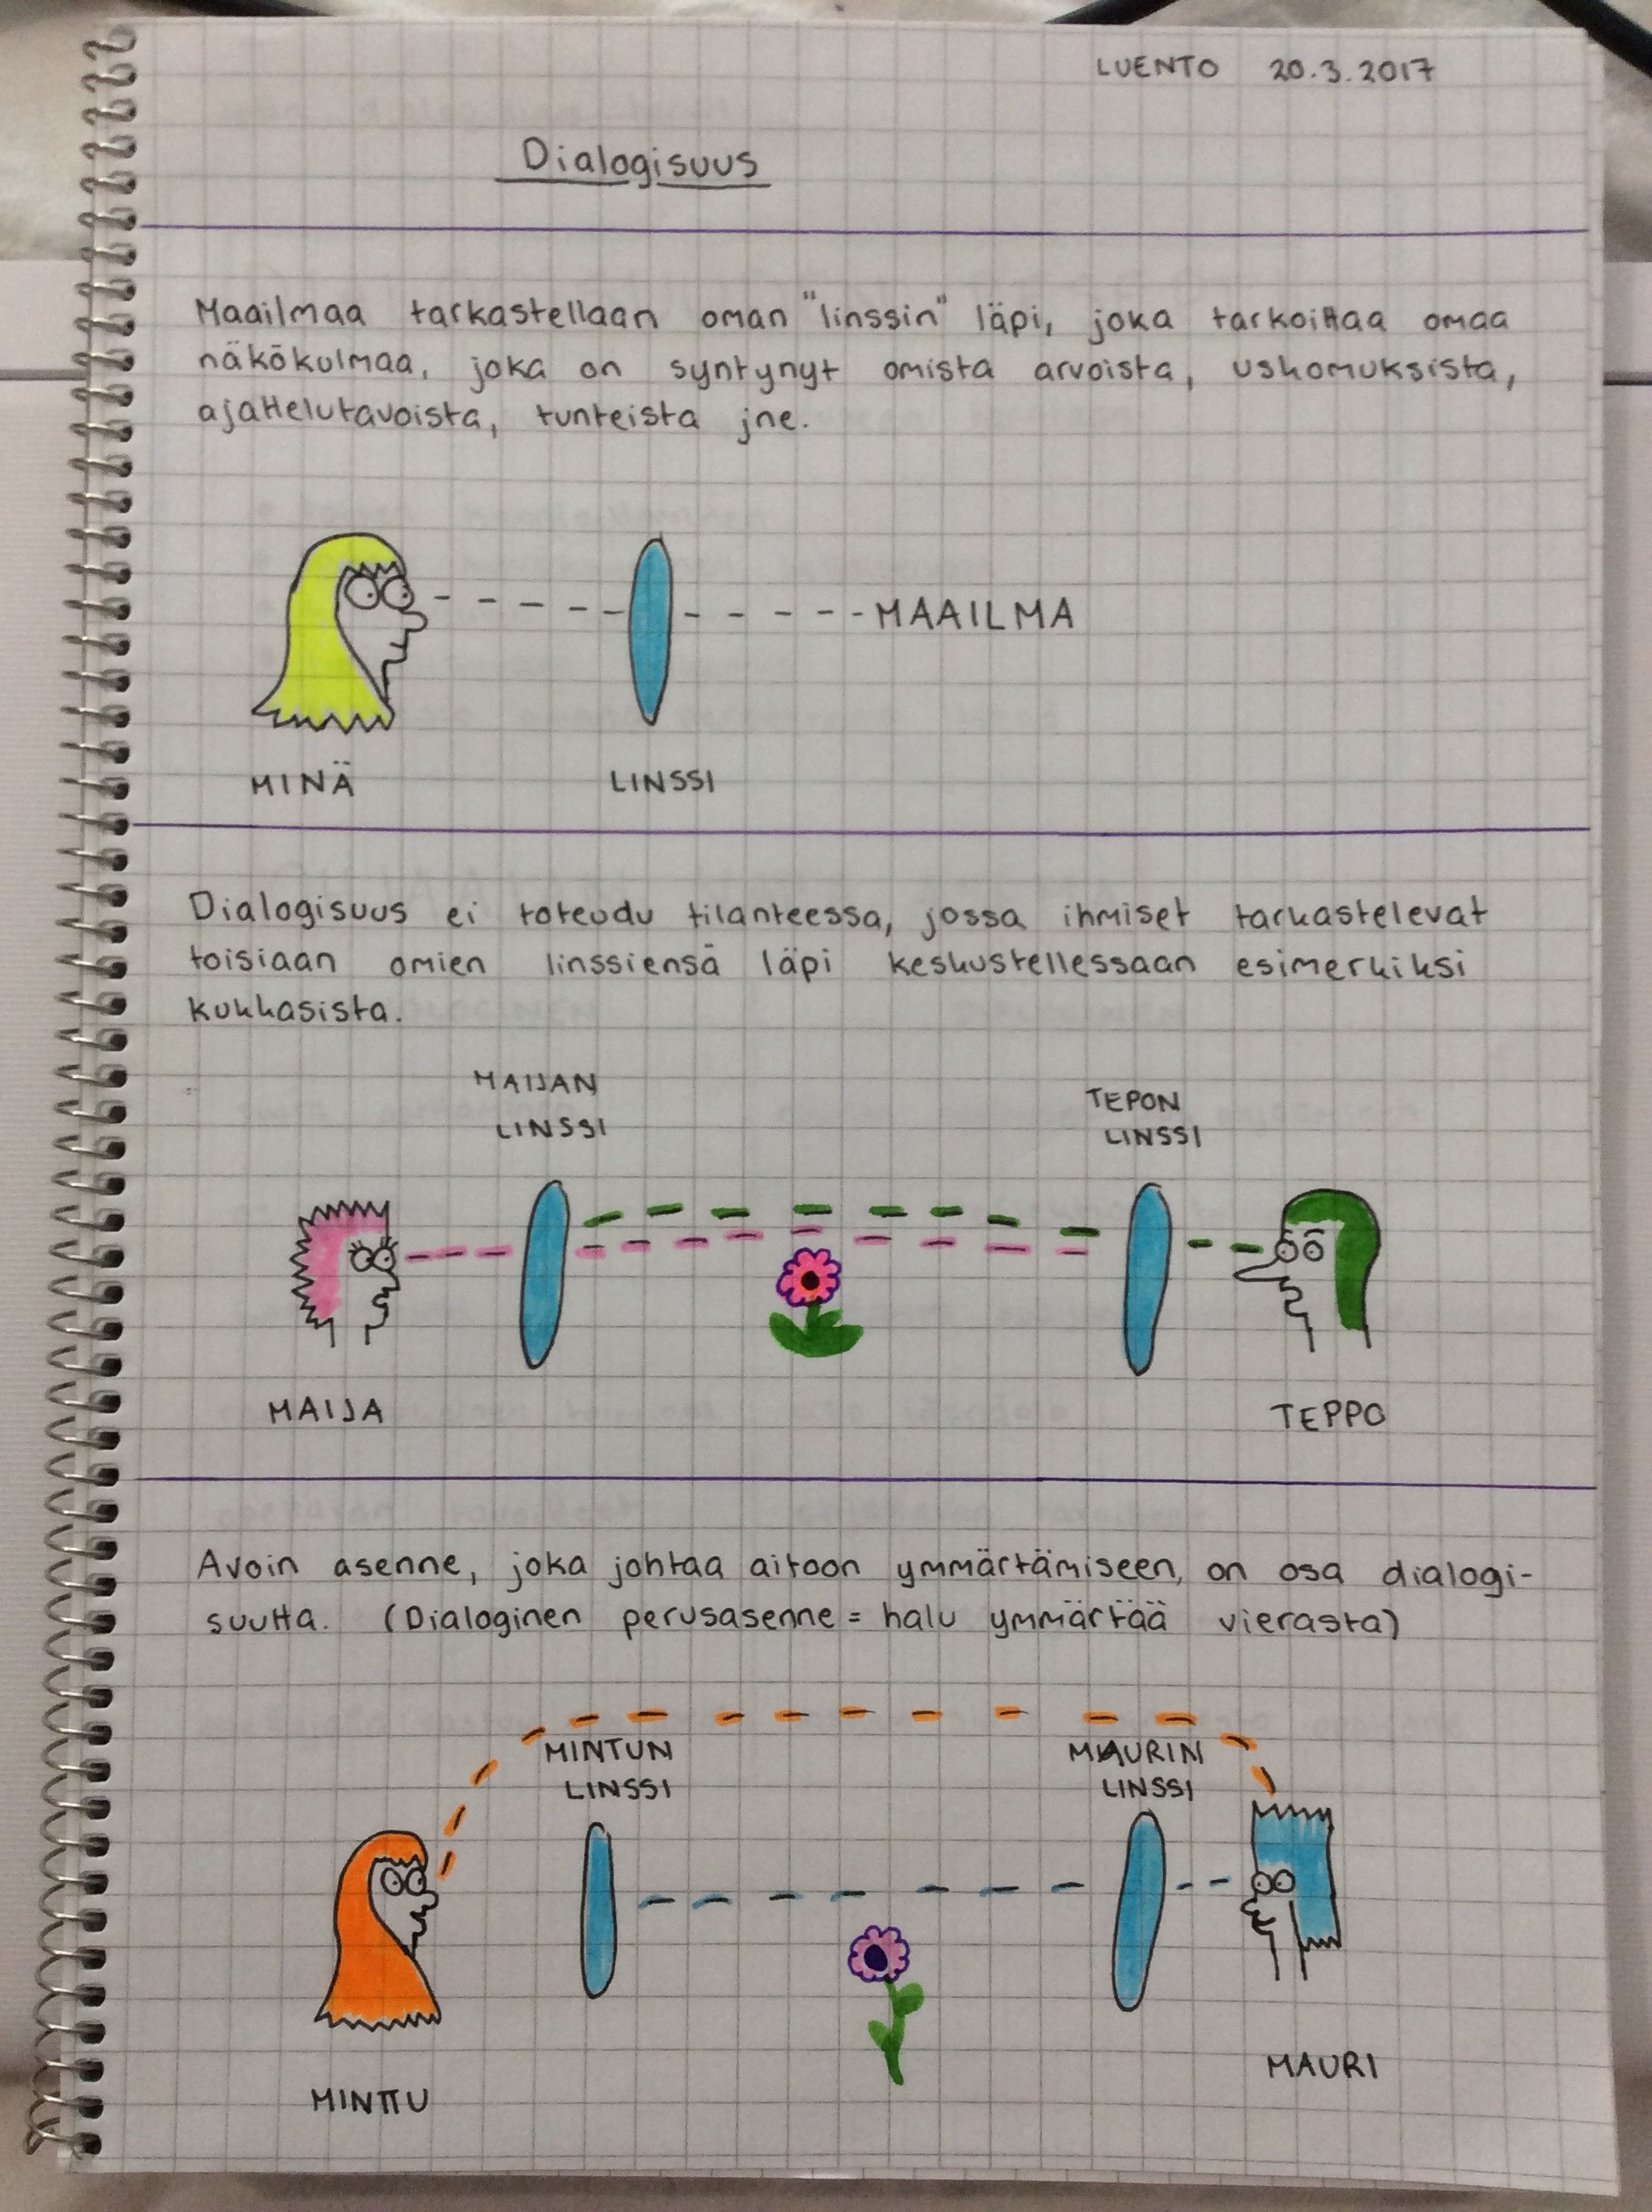 LUENTO 20.3.2017
Dialogisuus
Maailmaa tarkastellaan oman "linssin" läpi, joka tarkoittaa omaa
näkökulmaa, joka on syntynyt omista arvoista, uskomuksista,
ajattelutavoista, tunteista jne.
MAAILMA
MINÄ LINSSI
Dialogisuus ei toteudu tilanteessa, jossa ihmiset tarkastelevat
toisiaan omien linssiensä läpi keskustellessaan esimerkiksi
kukkasista.
MAIJAN
LINSSI
TEPON
LINSSI
MAIJA
TEPPO
Avoin asenne, joka johtaa aitoon ymmärtämiseen, on osa dialogi-
suutta. (Dialoginen perusasenne = halu ymmärtää vierasta)
MINTUN
LINSSI
MAURIN
LINSSI
MINTTU
MAURI